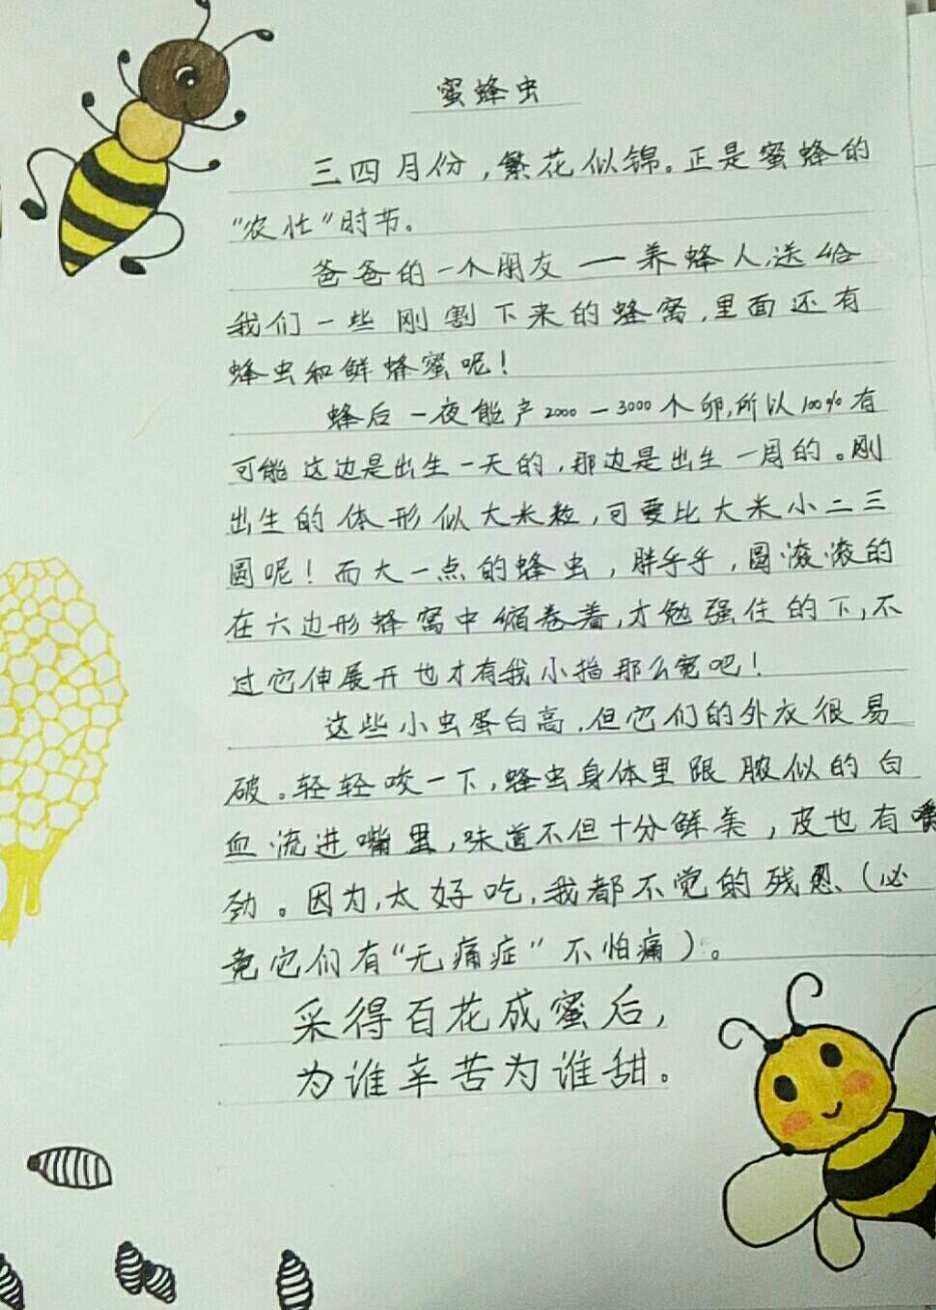 蜜蜂虫
三四月份，繁花似锦。正是蜜蜂的
“农忙”时节。
爸爸的一个朋友一养蜂人,送给
我们一些刚割下来的蜂窝,里面还有
蜂虫和鲜蜂蜜呢！
蜂后一夜能产2000—3000个卵,所以100%有
可能这边是出生一天的,那边是出生一周的。刚
出生的体形似大米粒,可要比大米小二三
圆呢！而大一点的蜂虫，胖乎乎，圆滚滚的
在六边形蜂窝中缩卷着,才勉强住的下,不
过它伸展开也才有我小指那么宽吧！
这些小虫蛋白高,但它们的外衣很易
破。轻轻咬一下,蜂虫身体里跟脓似的白
血流进嘴里,味道不但十分鲜美，皮也有嚼
劲。因为,太好吃,我都不觉的残忍(必
竟它们有“无痛症”不怕痛)。
采得百花成蜜后,
为谁辛苦为谁甜。